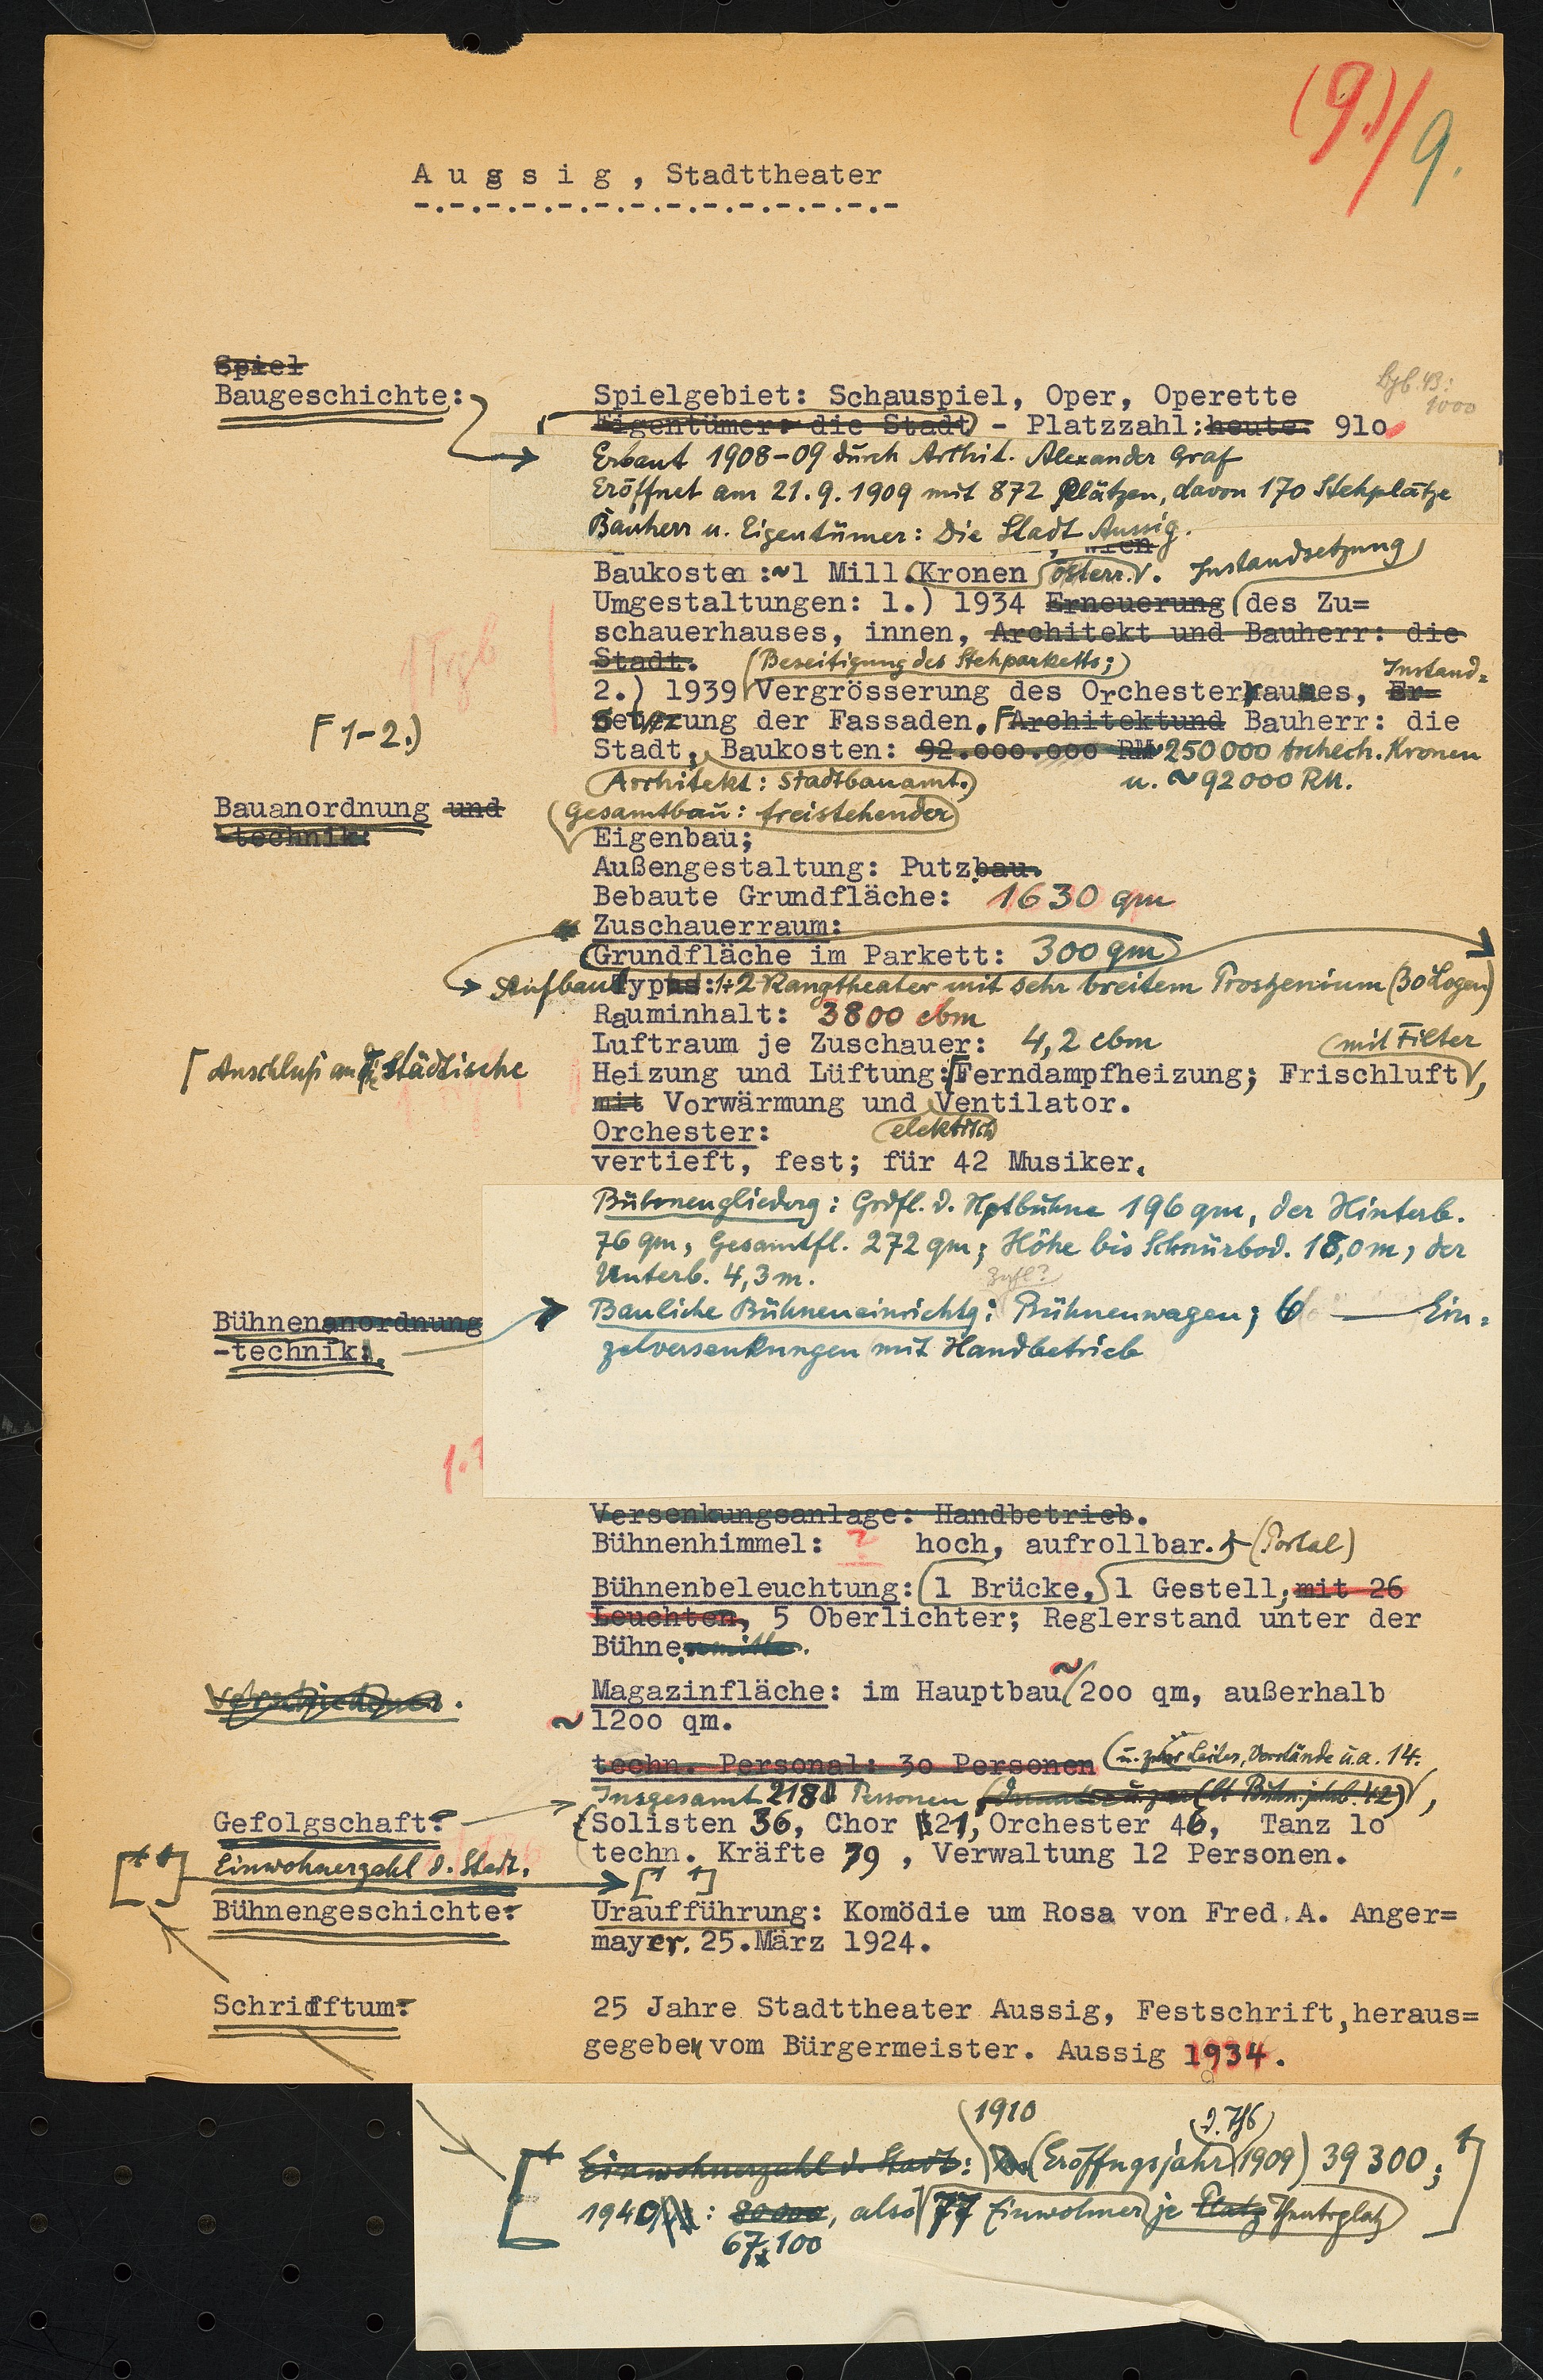 (9.)/9.
A u s s i g , Stadttheater
-.-.-.-.-.-.-.-.-.-.-.-.-.-
Spiel
Baugeschichte: Spielgebiet: Schauspiel, Oper, Operette
1000
Eigentümer: die Stadt - Platzzahl: heute: 91o
Erbaut 1908-09 durch Archit. Alexander Graf
Eröffnet am 21.9.1909 mit 872 Plätzen, davon 170 Stehplätze
Bauherr u. Eigentümer: Die Stadt Aussig.
, Wien
Baukosten: ~1 Mill. Kronen österr. Instandsetzung
Umgestaltungen: 1.) 1934 Erneuerung des Zu=
schauerhauses, innen, Architekt und Bauherr: die
Stadt. (Beseitigung des Stehparketts;) Instand=
2.) 1939 Vergrösserung des Orchesterraumes, Er=
setzung der Fassaden. Architektund Bauherr: die
1-2.)
Stadt, Baukosten: 92.ooo.ooo RM ~250000 tschech. Kronen
Architekt: Stadtbauamt. u. ~92000 RM.
Bauanordnung und Gesamtbau: freistehender
-technik: Eigenbau;
Außengestaltung: Putzbau.
Bebaute Grundfläche: 1630 qm
Zuschauerraum:
Grundfläche im Parkett: 300 qm
Aufbautypus: 1÷2 Rangtheater mit sehr breitem Proszenium (30 Logen)
Rauminhalt: 3800 cbm
Luftraum je Zuschauer: 4,2 cbm mit Filter
Anschluß an die Städtische Heizung und Lüftung: Ferndampfheizung; Frischluft,
mit Vorwärmung und Ventilator.
Orchester: elektrisch
vertieft, fest; für 42 Musiker.
Bühnengliederg: Grdfl. d. Hptbühne 196 qm, der Hinterb.
76 qm, Gesamtfl. 272 qm; Höhe bis Schnürbod. 18,0 m, der
Unterb. 4,3 m.
Bühnenanordnung Bauliche Bühneneinrichtg: Bühnenwagen; 6 — Ein=
-technik: zelversenkungen mit Handbetrieb
Versenkungsanlage: Handbetrieb.
Bühnenhimmel: ? hoch, aufrollbar. (Portal)
Bühnenbeleuchtung: 1 Brücke, 1 Gestell, mit 26
Leuchten, 5 Oberlichter; Reglerstand unter der
Bühnenmitte.
Magazinfläche: im Hauptbau ~2oo qm, außerhalb
~12oo qm.
techn. Personal: 3o Personen u. zwar Leiter, Vorstände u.a. 14.
Insgesamt 218 Personen
Gefolgschaft: Solisten 36, Chor 21, Orchester 46, Tanz 1o
techn. Kräfte 79, Verwaltung 12 Personen.
[+ +] Einwohnerzahl d. Stadt. [+ +]
Bühnengeschichte: Uraufführung: Komödie um Rosa von Fred A. Anger=
mayer. 25.März 1924.
Schrifftum: 25 Jahre Stadttheater Aussig, Festschrift, heraus=
gegeben vom Bürgermeister. Aussig 1934.
1910
Einwohnerzahl d. Stadt: (Eröffngsjahr 1909) 39 300;
1940: 80000, also 77 Einwohner je Platz Theaterplatz
67 100